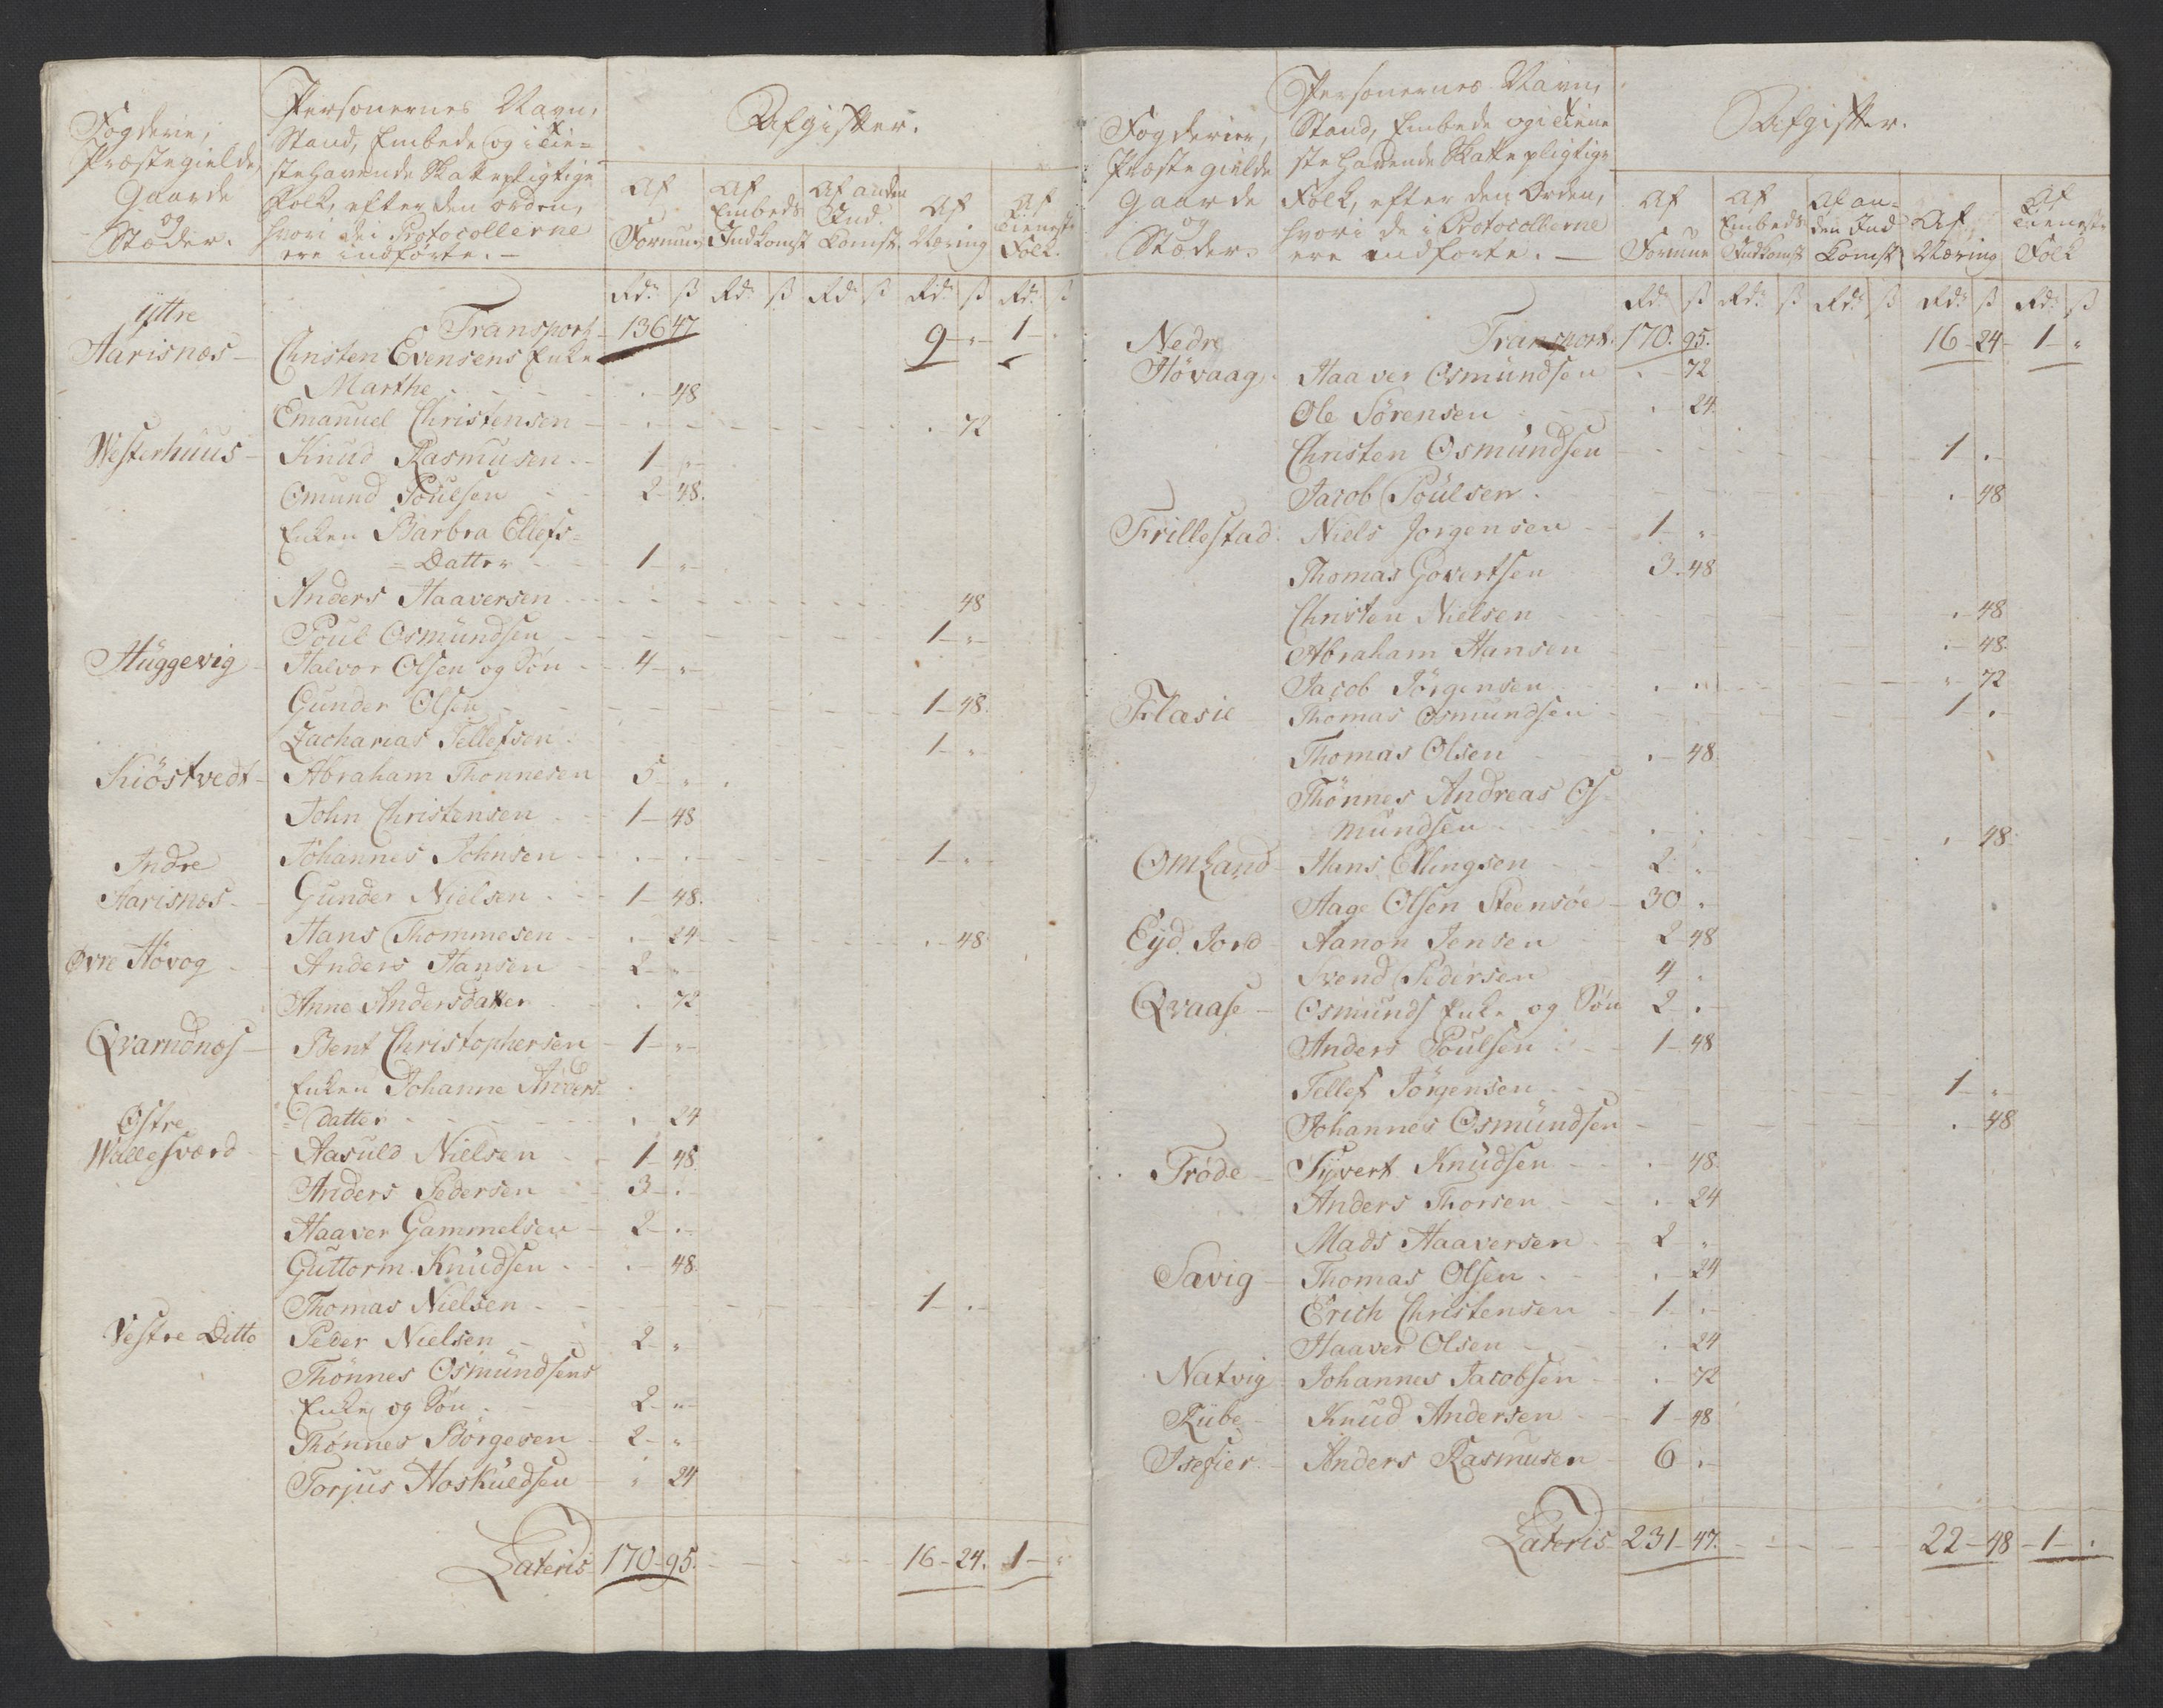 Fogderie,
Præstegielde,
Gaarde
og
Stæder.
Personernes Navn,
Stand, Embede og i Tie=
ste havende Skatepligtige
Folk, efter den orden,
hvori de i Protocollerne
ere indførte. —
Afgifter.
Af Formue
Af Embeds Indkomst
Af anden Ind komst
Af Næring
Af Tieneste Folk.
Rd. ß Rd. ß Rd. ß Rd. ß Rd. ß
Transport 136 47 9 - " - 1 -
Yttre
Aarisnæs — Christen Evensens Enke
Marthe . - 48
Emanuel Christensen - . - 72
Westerhuus — Knud Rasmusen - 1 - " -
Omund Poulsen 2 - 48.
Enken Barbra Ellefs=
= Datter - 1 - " -
Anders Haaversen - 48
Poul Osmundsen - 1 - " -
Huggevig — Halvor Olsen og Søn - 4 - " -
Gunder Olsen - 1 - 48.
Zacharias Tellefsen - 1 - "
Kiöstvedt — Abraham Thonnesen 5 - "
John Christensen - 1 - 48
Johannes Johnsen - 1 - " -
Indre
Aarisnæs — Gunder Nielsen - 1 - 48.
Hans Thommesen - . - 24 - . - 48
Øvre Høvog — Anders Hansen - 2 - " -
Anne Andersdatter . 72
Qvarndnæs — Bent Christophersen - 1 - " -
Enken Johanne Anders=
= datter - . 24
Østre
Wallesværd — Aasuld Nielsen - 1 - 48
Anders Pedersen 3 - . -
Haaver Gammelsen - 2 - . -
Guttorm Knudsen - . - 48.
Thomas Nielsen - 1 - . -
Vestre Ditto Peder Nielsen - 2 - "
Thönnes Osmundsens
Enke og Søn . - 2 - " -
Thönnes Börgesen - 2 - "
Torjus Hoskuldsen - " 24
Lateris 170 - 95. 16 - 24. 1 - "
Fogderier,
Præstegielde
Gaarde
og
Stæder.
Personernes Navn,
Stand, Embede og i Tiene
ste havende Skatepligtige
Folk, efter den Orden,
hvori de i Protocollerne
ere indførte. —
Afgifter.
Af Formue
Af Embeds Indkomst
Af an= den Ind komst
Af Næring
Af Tieneste Folk
Rd. ß Rd. ß Rd. ß Rd. ß Rd. ß
Transport. 170. 95. 16 - 24 - 1 - "
Nedre
Høvaag. Haaver Osmundsen . - 72
Ole Sörensen . - 24.
Christen Osmundsen - 1 . -
Jacob Poulsen. . 48
Frillestad: Niels Jorgensen - 1 - "
Thomas Govertsen 3 - 48
Christen Nielsen . - 48
Abraham Hansen . - 48.
Jacob Jörgensen " - 72
Flæsie Thomas Osmundsen - 1 - . -
Thomas Olsen . - 48.
Thönnes Andreas Os
mundsen . 48.
Omland — Hans Ellingsen 2 - "
Aage Olsen Steensöe - 30 .
Eyd. Jord — Aanon Jensen 2 - 48
Svend Pedersen 4 .
Qvaase — Osmunds Enke og Søn 2 . -
Anders Poulsen . - 1 - 48
Tellef Jörgensen - 1 - " -
Johannes Osmundsen - . - 48
Tröde — Syvert Knudsen - . - 48.
Anders Thorsen - . 24
Mads Haaversen - 2 "
Sævig — Thomas Olsen . . - 24
Erich Christensen - 1 - . -
Haaver Olsen - . 24
Natvig. Johannes Jacobsen - . - 72
Rübe — Knud Andersen - 1 - 48
Isefier — Anders Rasmusen - 6 . -
Lateris 231 47. 22 - 48 - 1 - .